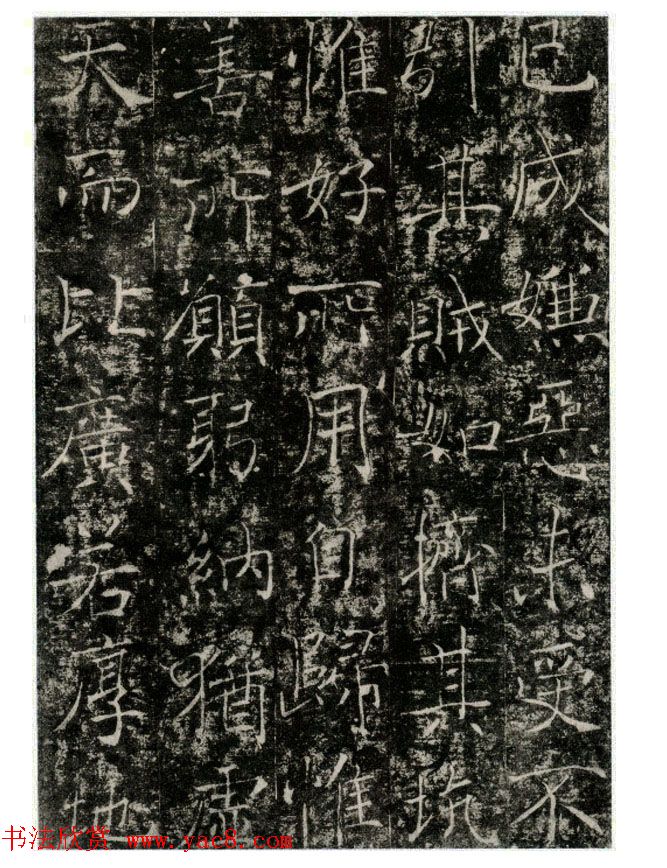 已成嫌惡未受不
甚賊如擠其坑
惟好所用自歸惟
善所願弱納猶虛
天而比廣若厚地
书法欣赏 www.yac8.com